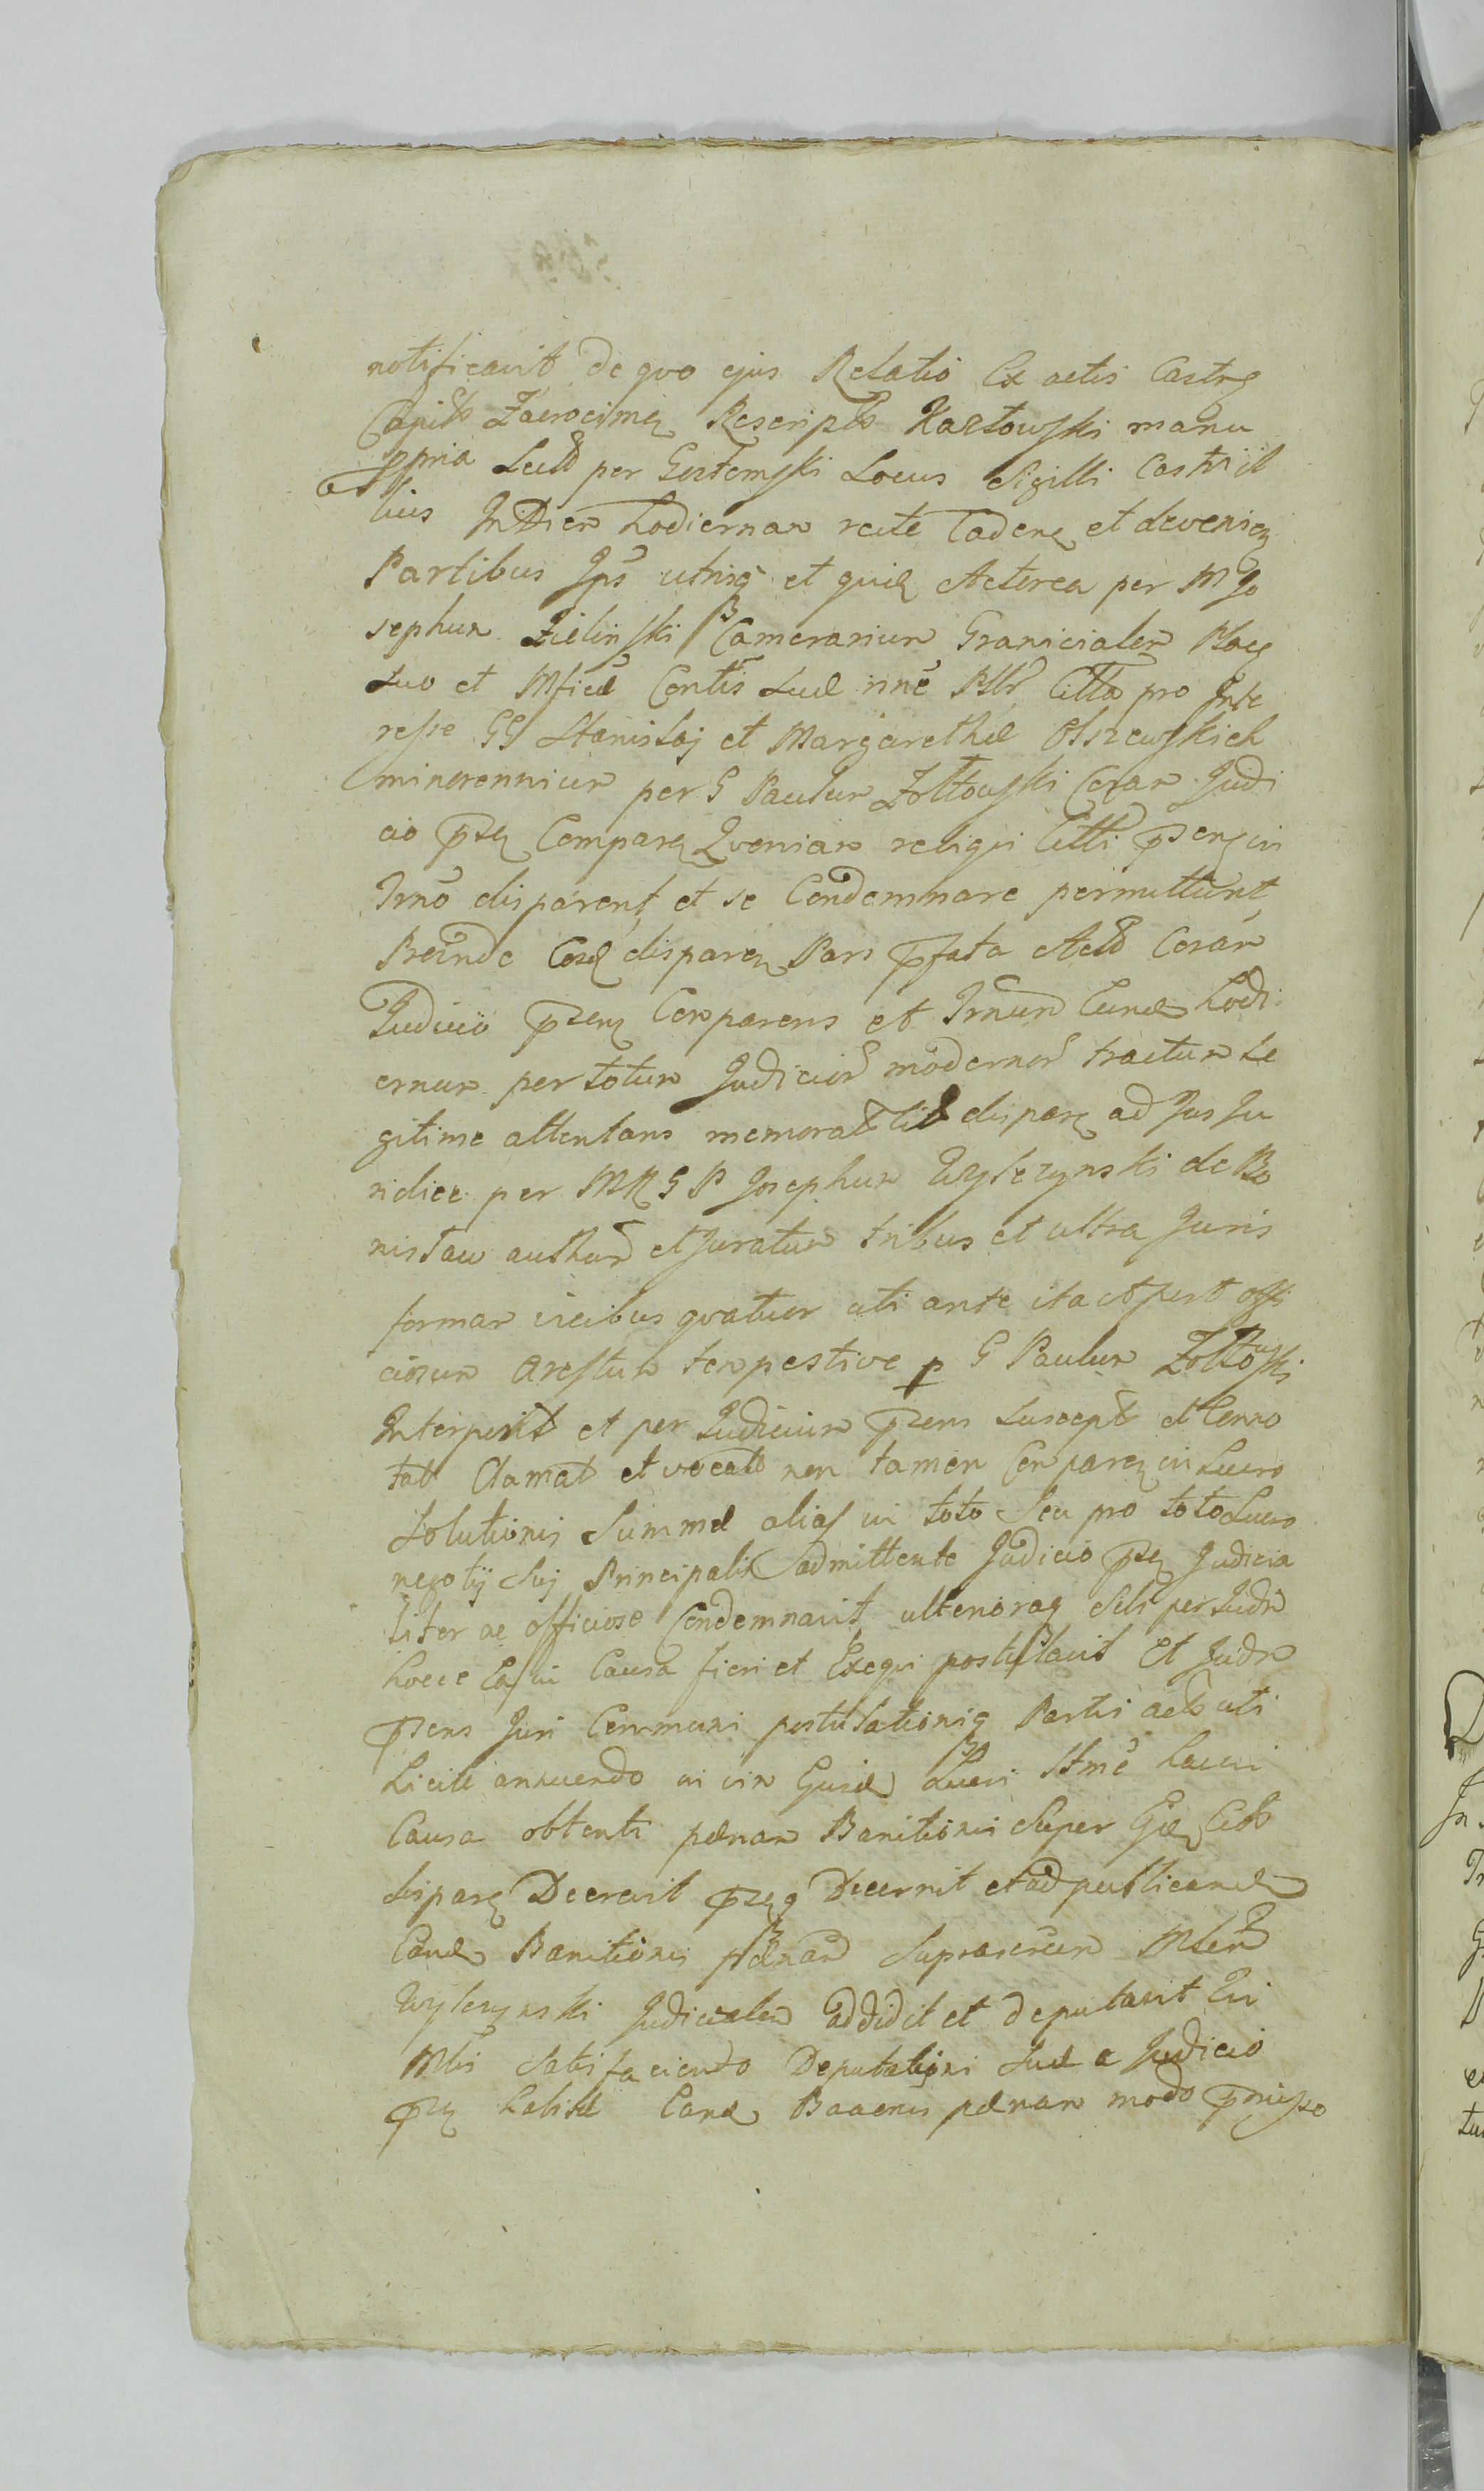 notificavit de quo ejus Relatio Ex actis Castr
Capit Zacrocimen Rescript Karłowski manu
ppria Lect per Gostomski Locus Sigilli Castri il
lius In Diem hodiernam recte Caden et devenien
Partibus Ips utrisq et quid Actorea per M Jo
sephum Zielinski Camerarium Granicialem Ploc
suo et Mficæ Contis suæ nne Pttr Citta pro Inte
resse GG Stanislaj et Margarethæ Olszewskich
minorennium per G Paulum Zołtowski Coram Judi
cio pzn Comparen Qvoniam reliqui Citti pzen in
Trno disparent et se Condemnare permittunt
Proinde Cosd disparen Pars pfata Act Coram
Judicio pzens Comparens et Trnum Cund hodi
ernum per totum Judicior modernor tractum Le
gitime attentans memorat Cit dispar ad Jus Ju
ridice per MRGP Josephum Wylezynski de Bo
nislaw author et Juratum tribus et ultra Juris
formam vicibus qvatuor uti ante ita et post offi
ciosum Arestum tempestive p G Paulum Zołtowski
Interposit et per Judicium pzens Suscept et Conno
tat Clamat et vocatt non tamen Comparen in Lucro
Solutionis Summæ alias in toto Seu pro toto Lucro
negotij Suj Principalis admittente Judicio pzn Judicia
liter ac officiose Condemnavit ulterioraq Sibi per Judm
hocce Eas in Causa fieri et Exequi postulavit Et Judm
pzens Juri Communi postulationiq Partis act uti
Licite annuendo in vim Lucri hacin
Causa obtenti pænam Banitionis Super Citt
disparen Decrevit pznq Decernit et ad publicand
Eand Banitionis pænam Suprascrtum Mtrm
Wylezynski Judicialem addidit et deputavit Qui
Mtr Satisfaciendo Deputationi Suæ a Judicio
pzn habitæ Eand Baaenis pænam modo pmisso